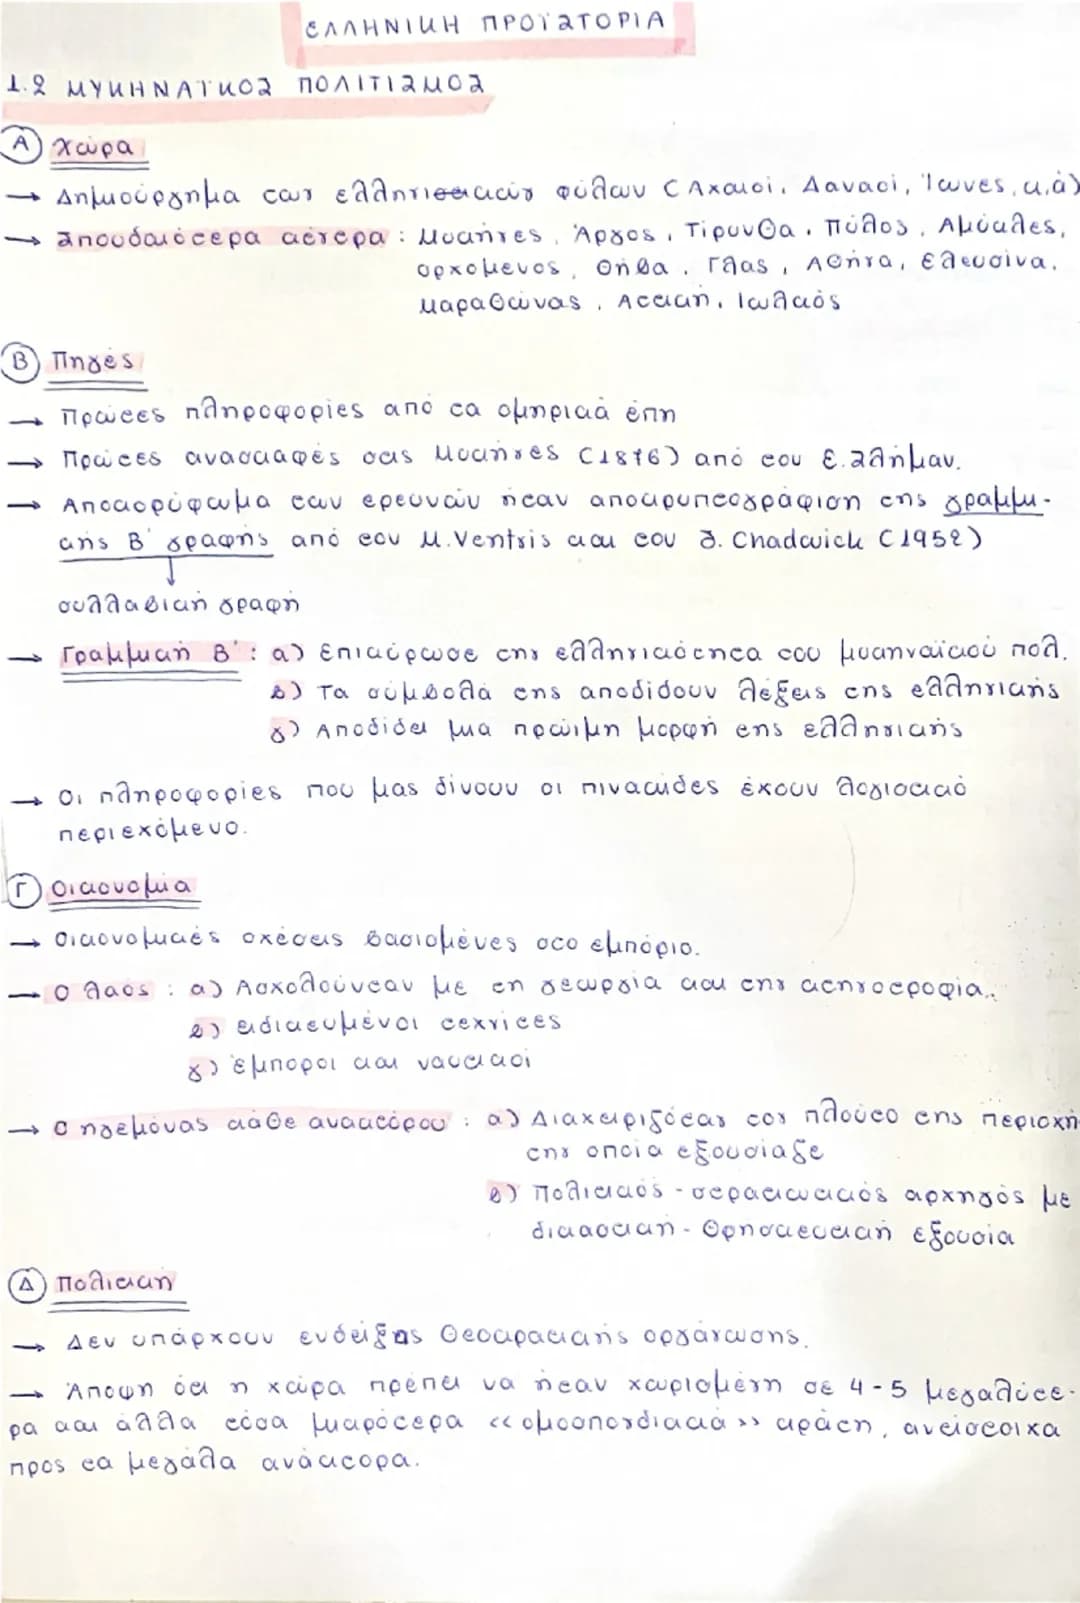 ΕΛΛΗΝΙΚΗ ΠΡΟΪΣΤΟΡΙΑ
1.2 ΜΥΚΗΝΑΪΚΟΣ ΠΟΛΙΤΙΣΜΟΣ
Α Χώρα
→ Δημιούργημα των ελληνιστικών φύλων (Αχαιοί, Δαναοί, Ίωνες, κ.ά)
→ Σπουδαιότερα κέντρα : Μυκήνες, Άργος, Τίρυνθα, Πύλος, Αμύκλες,
ορχομενος, Θήβα, Γλας, Αθήνα, Ελευσίνα,
Μαραθώνας, Αττική, Ιωλκός
Β Πηγές
→ Πρώτες πληροφορίες από τα ομηρικά έπη
→ Πρώτες ανασκαφές στις Μυκήνες (1876) από τον Ε. Σλήμαν.
→ Αποκορύφωμα των ερευνών ήταν αποκρυπτογράφιση της γραμμι-
κής Β΄ γραφής από τον M. Ventris και τον J. Chadwick (1952)
συλλαβική γραφή
→ Γραμμική Β΄ : α) Επικύρωσε την ελληνικότητα του μυκηναϊκού πολ.
β) Τα σύμβολα της αποδίδουν λέξεις της ελληνικής
γ) Αποδίδει μια πρώιμη μορφή της ελληνικής
→ Οι πληροφορίες που μας δίνουν οι πινακίδες έχουν λογιστικό
περιεχόμενο.
Γ Οικονομία
→ Οικονομικές σχέσεις βασισμένες στο εμπόριο.
→ Ο λαός : α) Ασχολούνταν με τη γεωργία και την κτηνοτροφία.
β) ειδικευμένοι τεχνίτες
γ) έμποροι και ναυτικοί
→ Ο ηγεμόνας κάθε ανακτόρου : α) Διαχειριζόταν τον πλούτο της περιοχή
την οποία εξουσίαζε
β) Πολιτικός - στρατιωτικός αρχηγός με
δικαστική - Θρησκευτική εξουσία
Δ Πολιτική
→ Δεν υπάρχουν ενδείξεις Θεοκρατικής οργάνωσης.
→ Άποψη ότι η χώρα πρέπει να ήταν χωρισμένη σε 4-5 μεγαλύτε-
ρα και άλλα τόσα μικρότερα «ομοσπονδιακά» κράτη, αντίστοιχα
προς τα μεγάλα ανάκτορα.